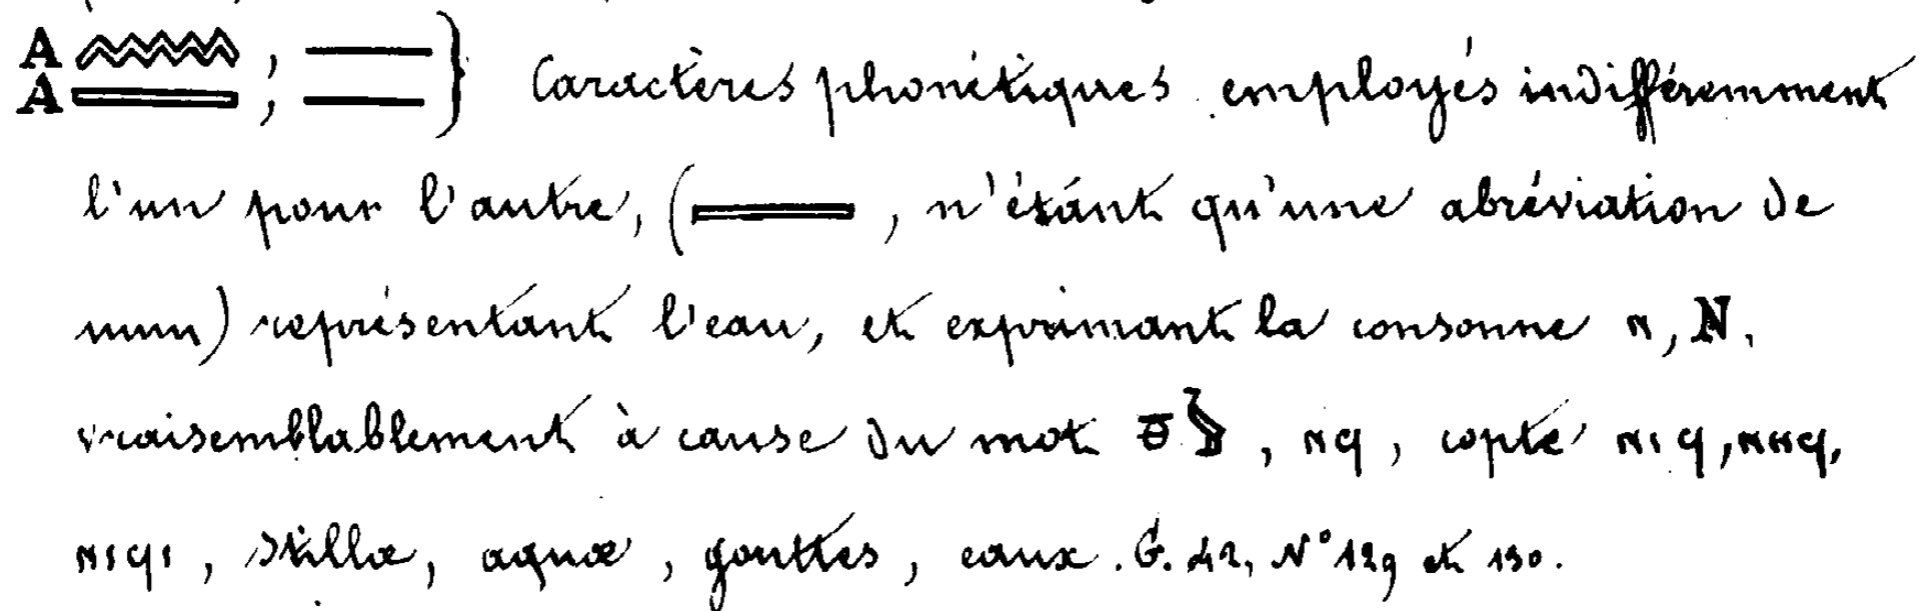 A 𓈖 ; —
A ▭ ; — } Caractères phonétiques employés indifféremment
l'un pour l'autre, (▭, n'étant qu'une abréviation de
𓈖) représentant l'eau, et exprimant la consonne ⲛ, N.
vraisemblablement à cause du mot , ⲛϥ, copte ⲛⲓϥ, ⲛⲏϥ,
ⲛⲓϥⲓ, stillæ, aquæ, gouttes, eaux. G. 42, N° 129 et 130.